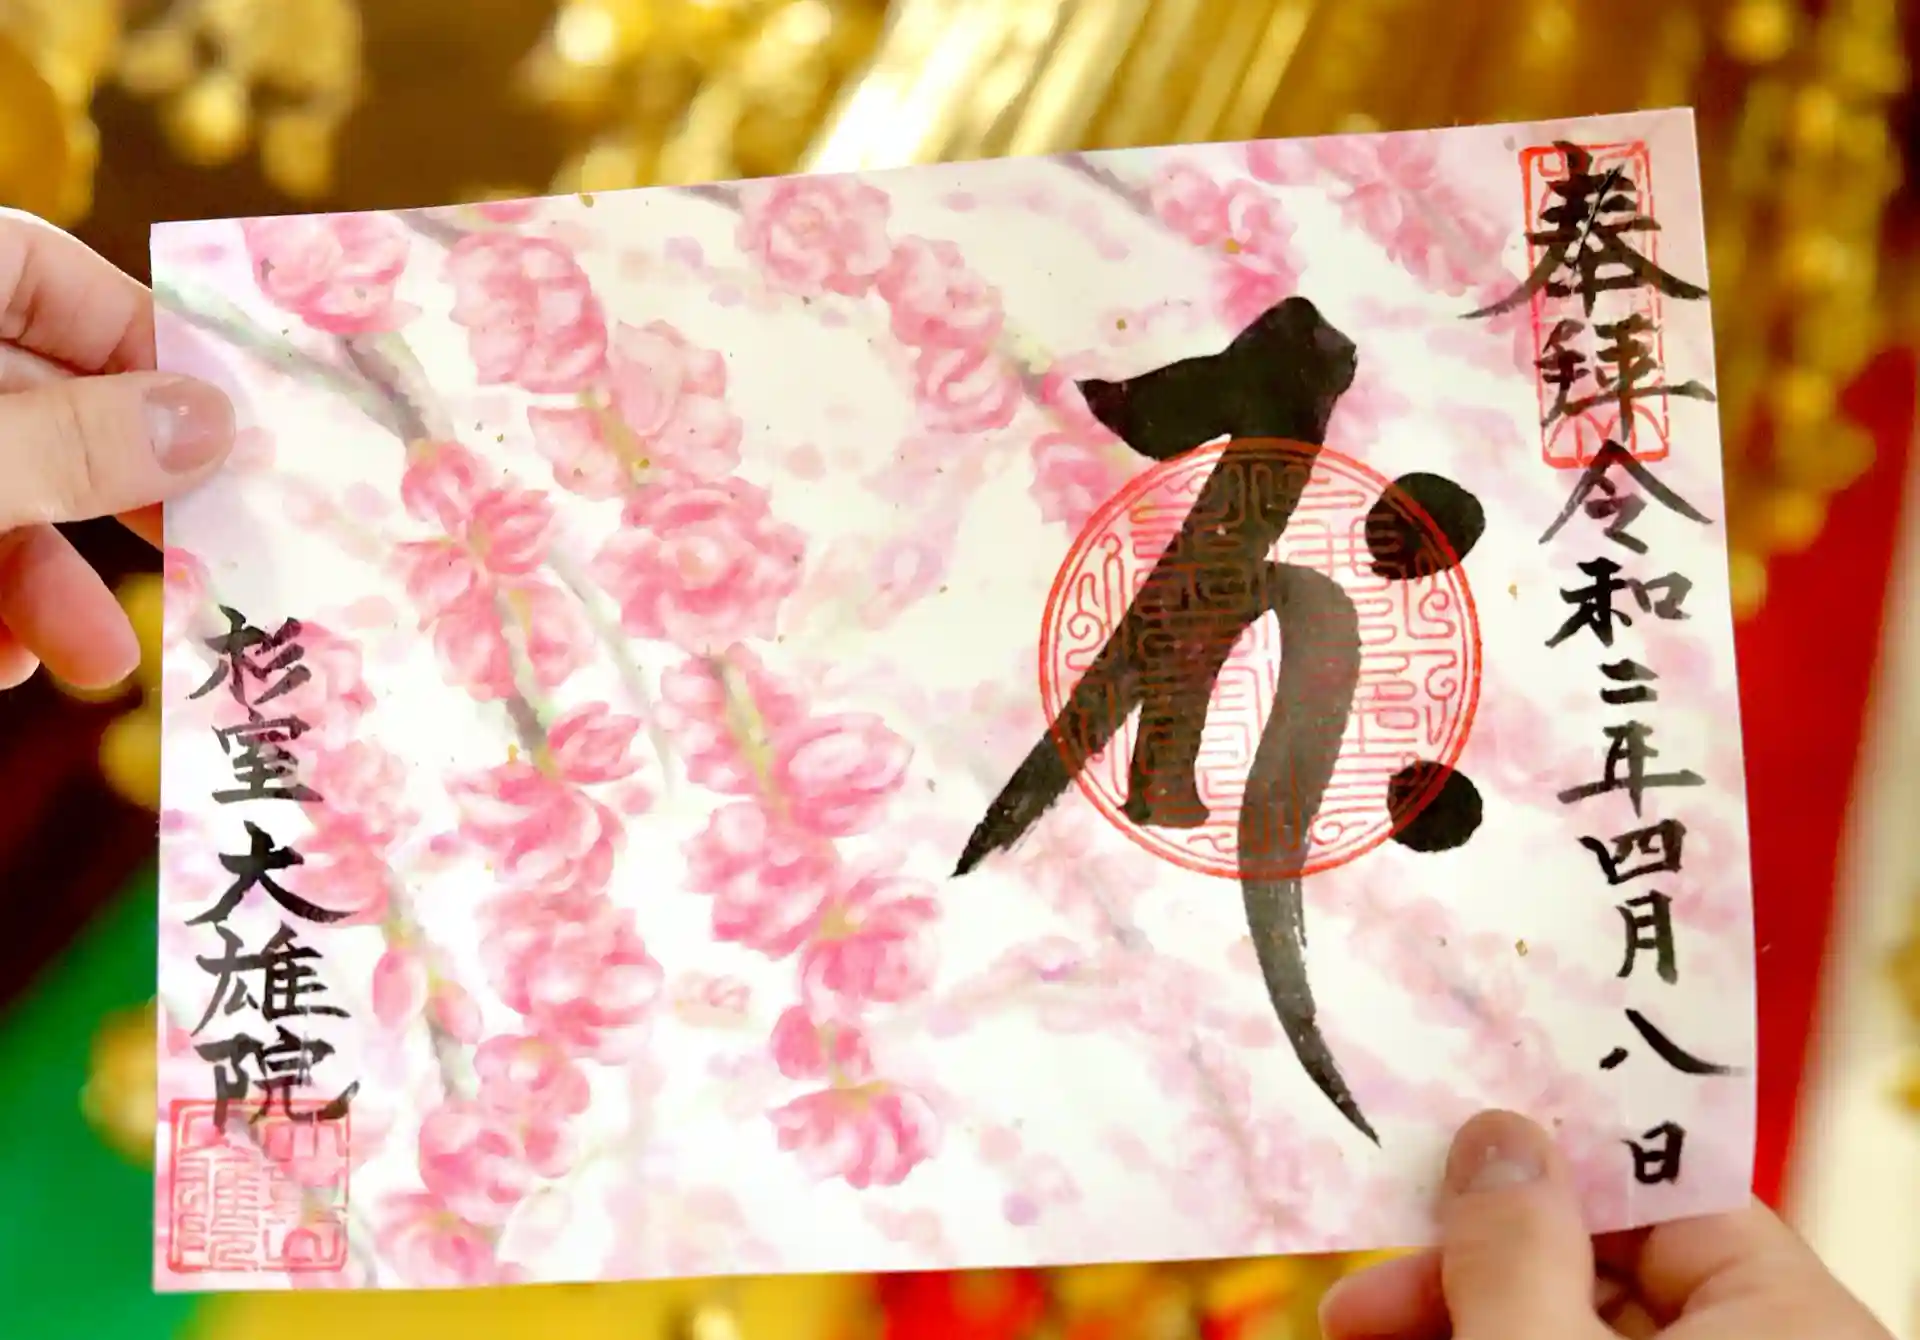 奉拝 令和二年四月八日
𑖥𑖾
杉室大雄院